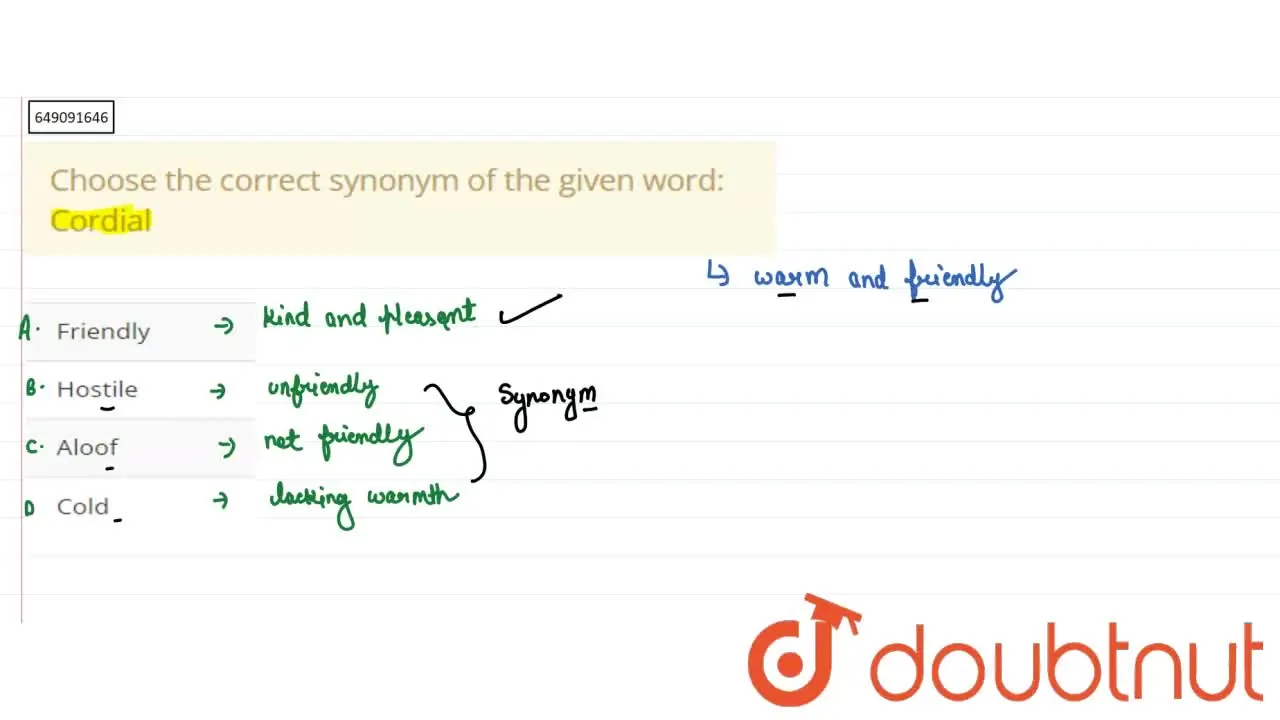 649091646
Choose the correct synonym of the given word:
Cordial
↳ warm and friendly
A. Friendly → kind and pleasant ✓
B. Hostile → unfriendly
Synonym
C. Aloof → not friendly
D Cold → lacking warmth
doubtnut